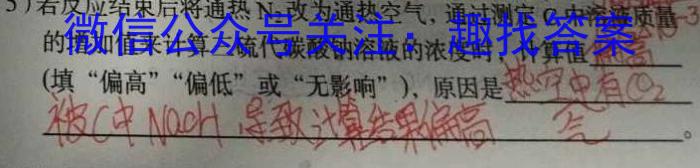 5)若反应结束后将通热N₂改为通热空气,通过测定C中溶液质量
的增加值来计算三硫代碳酸钠溶液的浓度时,计算值偏高
微信公众号关注:趣找答案
(填“偏高”“偏低”或“无影响”),原因是热空气中有CO₂
被C中NaOH 导致计算结果偏高